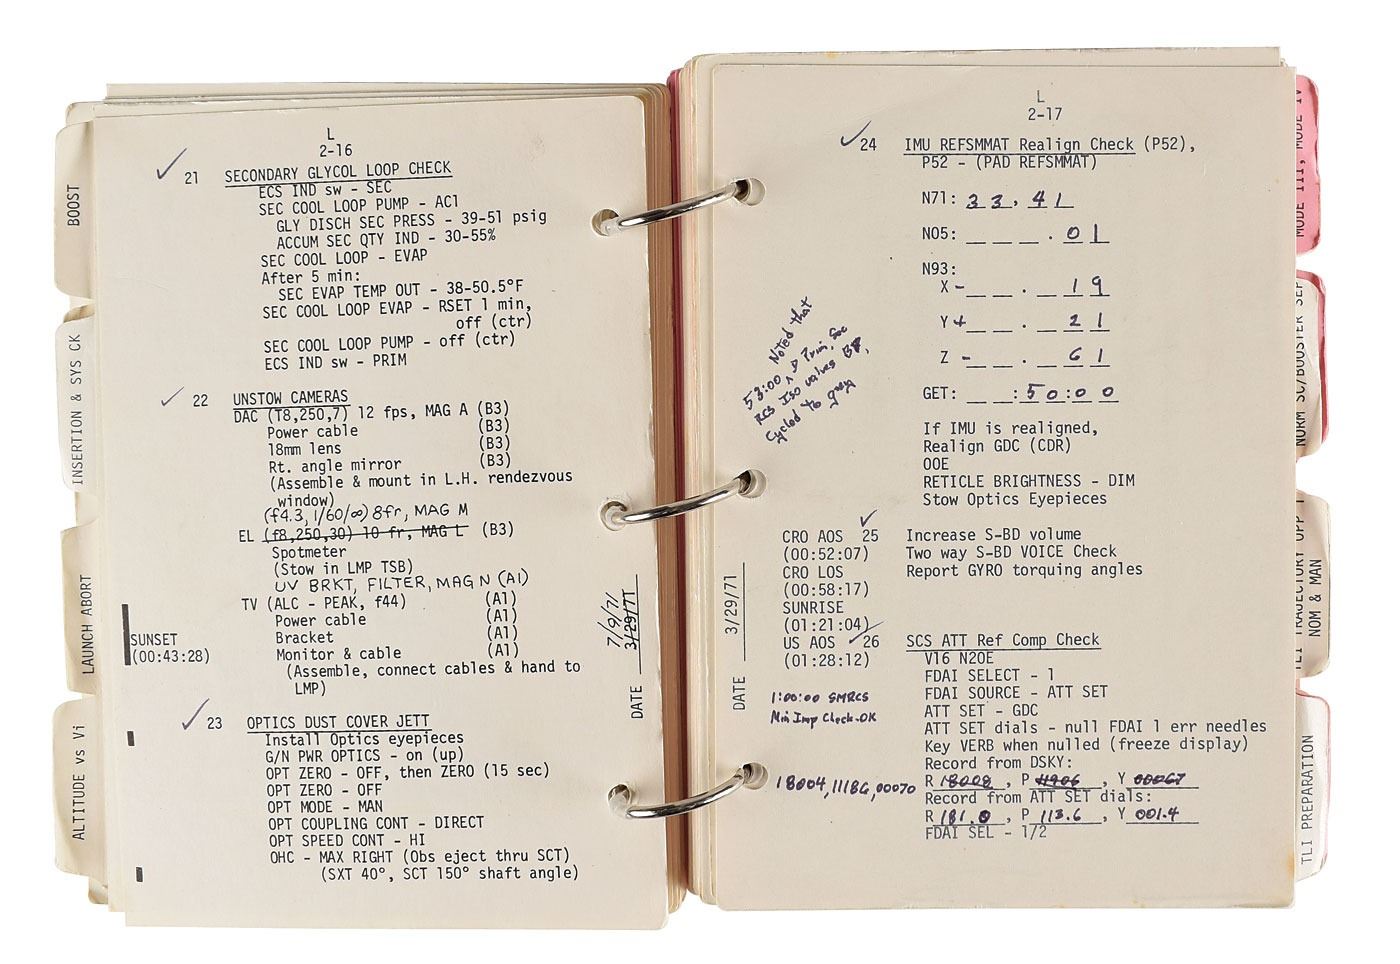 BOOST
INSERTION & SYS CK
LAUNCH ABORT
ALTITUDE vs Vi
L
2-16
✓ 21 SECONDARY GLYCOL LOOP CHECK
ECS IND sw - SEC
SEC COOL LOOP PUMP - AC1
GLY DISCH SEC PRESS - 39-51 psig
ACCUM SEC QTY IND - 30-55%
SEC COOL LOOP - EVAP
After 5 min:
SEC EVAP TEMP OUT - 38-50.5°F
SEC COOL LOOP EVAP - RSET 1 min,
off (ctr)
SEC COOL LOOP PUMP - off (ctr)
ECS IND sw - PRIM
✓ 22 UNSTOW CAMERAS
DAC (T8,250,7) 12 fps, MAG A (B3)
Power cable (B3)
18mm lens (B3)
Rt. angle mirror (B3)
(Assemble & mount in L.H. rendezvous
window)
(f4.3, 1/60/∞) 8fr, MAG M
EL (f8,250,30) 10 fr, MAG L (B3)
Spotmeter
(Stow in LMP TSB)
UV BRKT, FILTER, MAG N (A1)
TV (ALC - PEAK, f44) (A1)
Power cable (A1)
Bracket (A1)
Monitor & cable (A1)
(Assemble, connect cables & hand to
LMP)
SUNSET
(00:43:28)
✓ 23 OPTICS DUST COVER JETT
Install Optics eyepieces
G/N PWR OPTICS - on (up)
OPT ZERO - OFF, then ZERO (15 sec)
OPT ZERO - OFF
OPT MODE - MAN
OPT COUPLING CONT - DIRECT
OPT SPEED CONT - HI
OHC - MAX RIGHT (Obs eject thru SCT)
(SXT 40°, SCT 150° shaft angle)
7/9/71
DATE 3/29/71
L
2-17
✓ 24 IMU REFSMMAT Realign Check (P52),
P52 - (PAD REFSMMAT)
N71: 33, 41
N05: _ _ _ . 0 1
N93:
X - _ _ . _ 1 9
Y + _ _ . _ 2 1
Z - _ _ . _ 6 1
GET: _ _ : 5 0 : 0 0
Noted that
53:00 ^ B Prim, Sec
RCS Iso valves BP,
Cycled to gray
If IMU is realigned,
Realign GDC (CDR)
OOE
RETICLE BRIGHTNESS - DIM
Stow Optics Eyepieces
✓
CRO AOS 25 Increase S-BD volume
(00:52:07) Two way S-BD VOICE Check
CRO LOS Report GYRO torquing angles
(00:58:17)
SUNRISE
(01:21:04)
US AOS ✓ 26 SCS ATT Ref Comp Check
(01:28:12) V16 N20E
FDAI SELECT - 1
FDAI SOURCE - ATT SET
ATT SET - GDC
ATT SET dials - null FDAI 1 err needles
Key VERB when nulled (freeze display)
Record from DSKY:
1:00:00 SMRCS
Min Imp Check-OK
R 18002, P 11906, Y 00067
18004, 11186, 00070
Record from ATT SET dials:
R 181.0, P 113.6, Y 001.4
FDAI SEL - 1/2
DATE 3/29/71
MODE III, MODE IV
NORM SC/BOOSTER SEP
TLI TRAJECTORY OPP 1
NOM & MAN
TLI PREPARATION